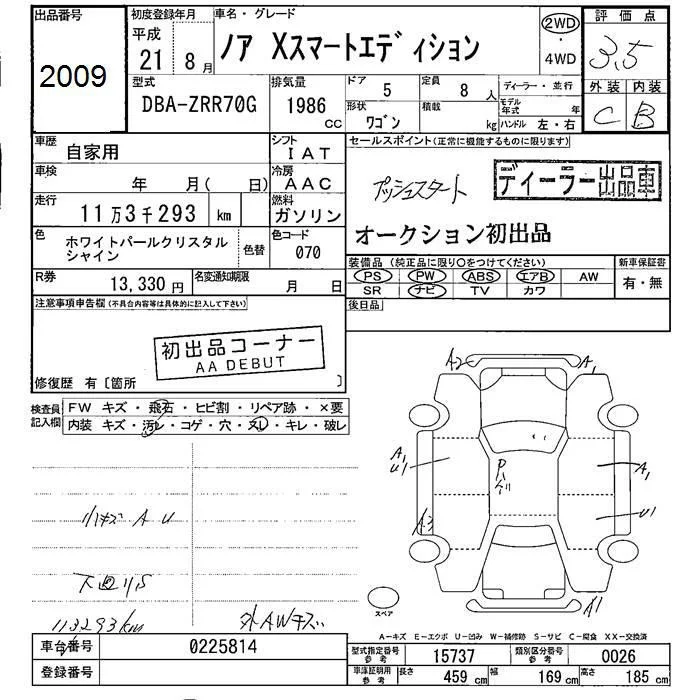 出品番号
2009
初度登録年月
平成
21 8月
車名・グレード
ノア Xスマートエディション
2WD
・
4WD
評価点
3.5
外装 内装
C B
型式
DBA-ZRR70G
排気量
1986
CC
ドア
5
定員
8 人
形状
ワゴン
積載
kg
ディーラー・並行
モデル年式 年
ハンドル 左・右
車歴
自家用
シフト
IAT
車検
年 月( 日)
冷房
AAC
走行
11万3千293 km
燃料
ガソリン
色
ホワイトパールクリスタル
シャイン
色替
色コード
070
R券
13,330円
名変通知期限
月 日
セールスポイント(正常に機能するものに限ります)
プッシュスタート
ディーラー出品車
オークション初出品
装備品(純正品に限り○をつけてください)
PS PW ABS エアB AW
SR ナビ TV カワ
新車保証書
有・無
後日品
注意事項申告欄(不具合内容等は具体的に記入して下さい)
初出品コーナー
AA DEBUT
修復歴 有〔箇所 〕
検査員
記入欄
FW キズ・飛石・ヒビ割・リペア跡・×要
内装 キズ・汚レ・コゲ・穴・スレ・キレ・破レ
小キズ A U
下回りS
113293km
外AWキズ
A2
A1
A1
U1
A1
U1
A3
A1
スペア
A-キズ E-エクボ U-凹み W-補修跡 S-サビ C-腐食 XX-交換済
車台番号
0225814
登録番号
型式指定番号
参考
15737
類別区分番号
参考
0026
車庫証明用
参考
長さ
459 cm
幅
169 cm
高さ
185 cm